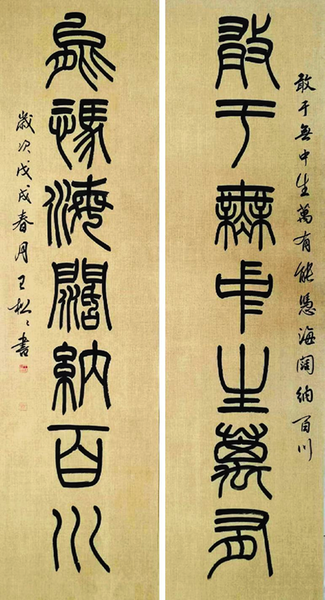 敢于無中生萬有能憑海闊納百川
敢于無中生萬有
能憑海闊納百川
歲次戊戌春月王松書